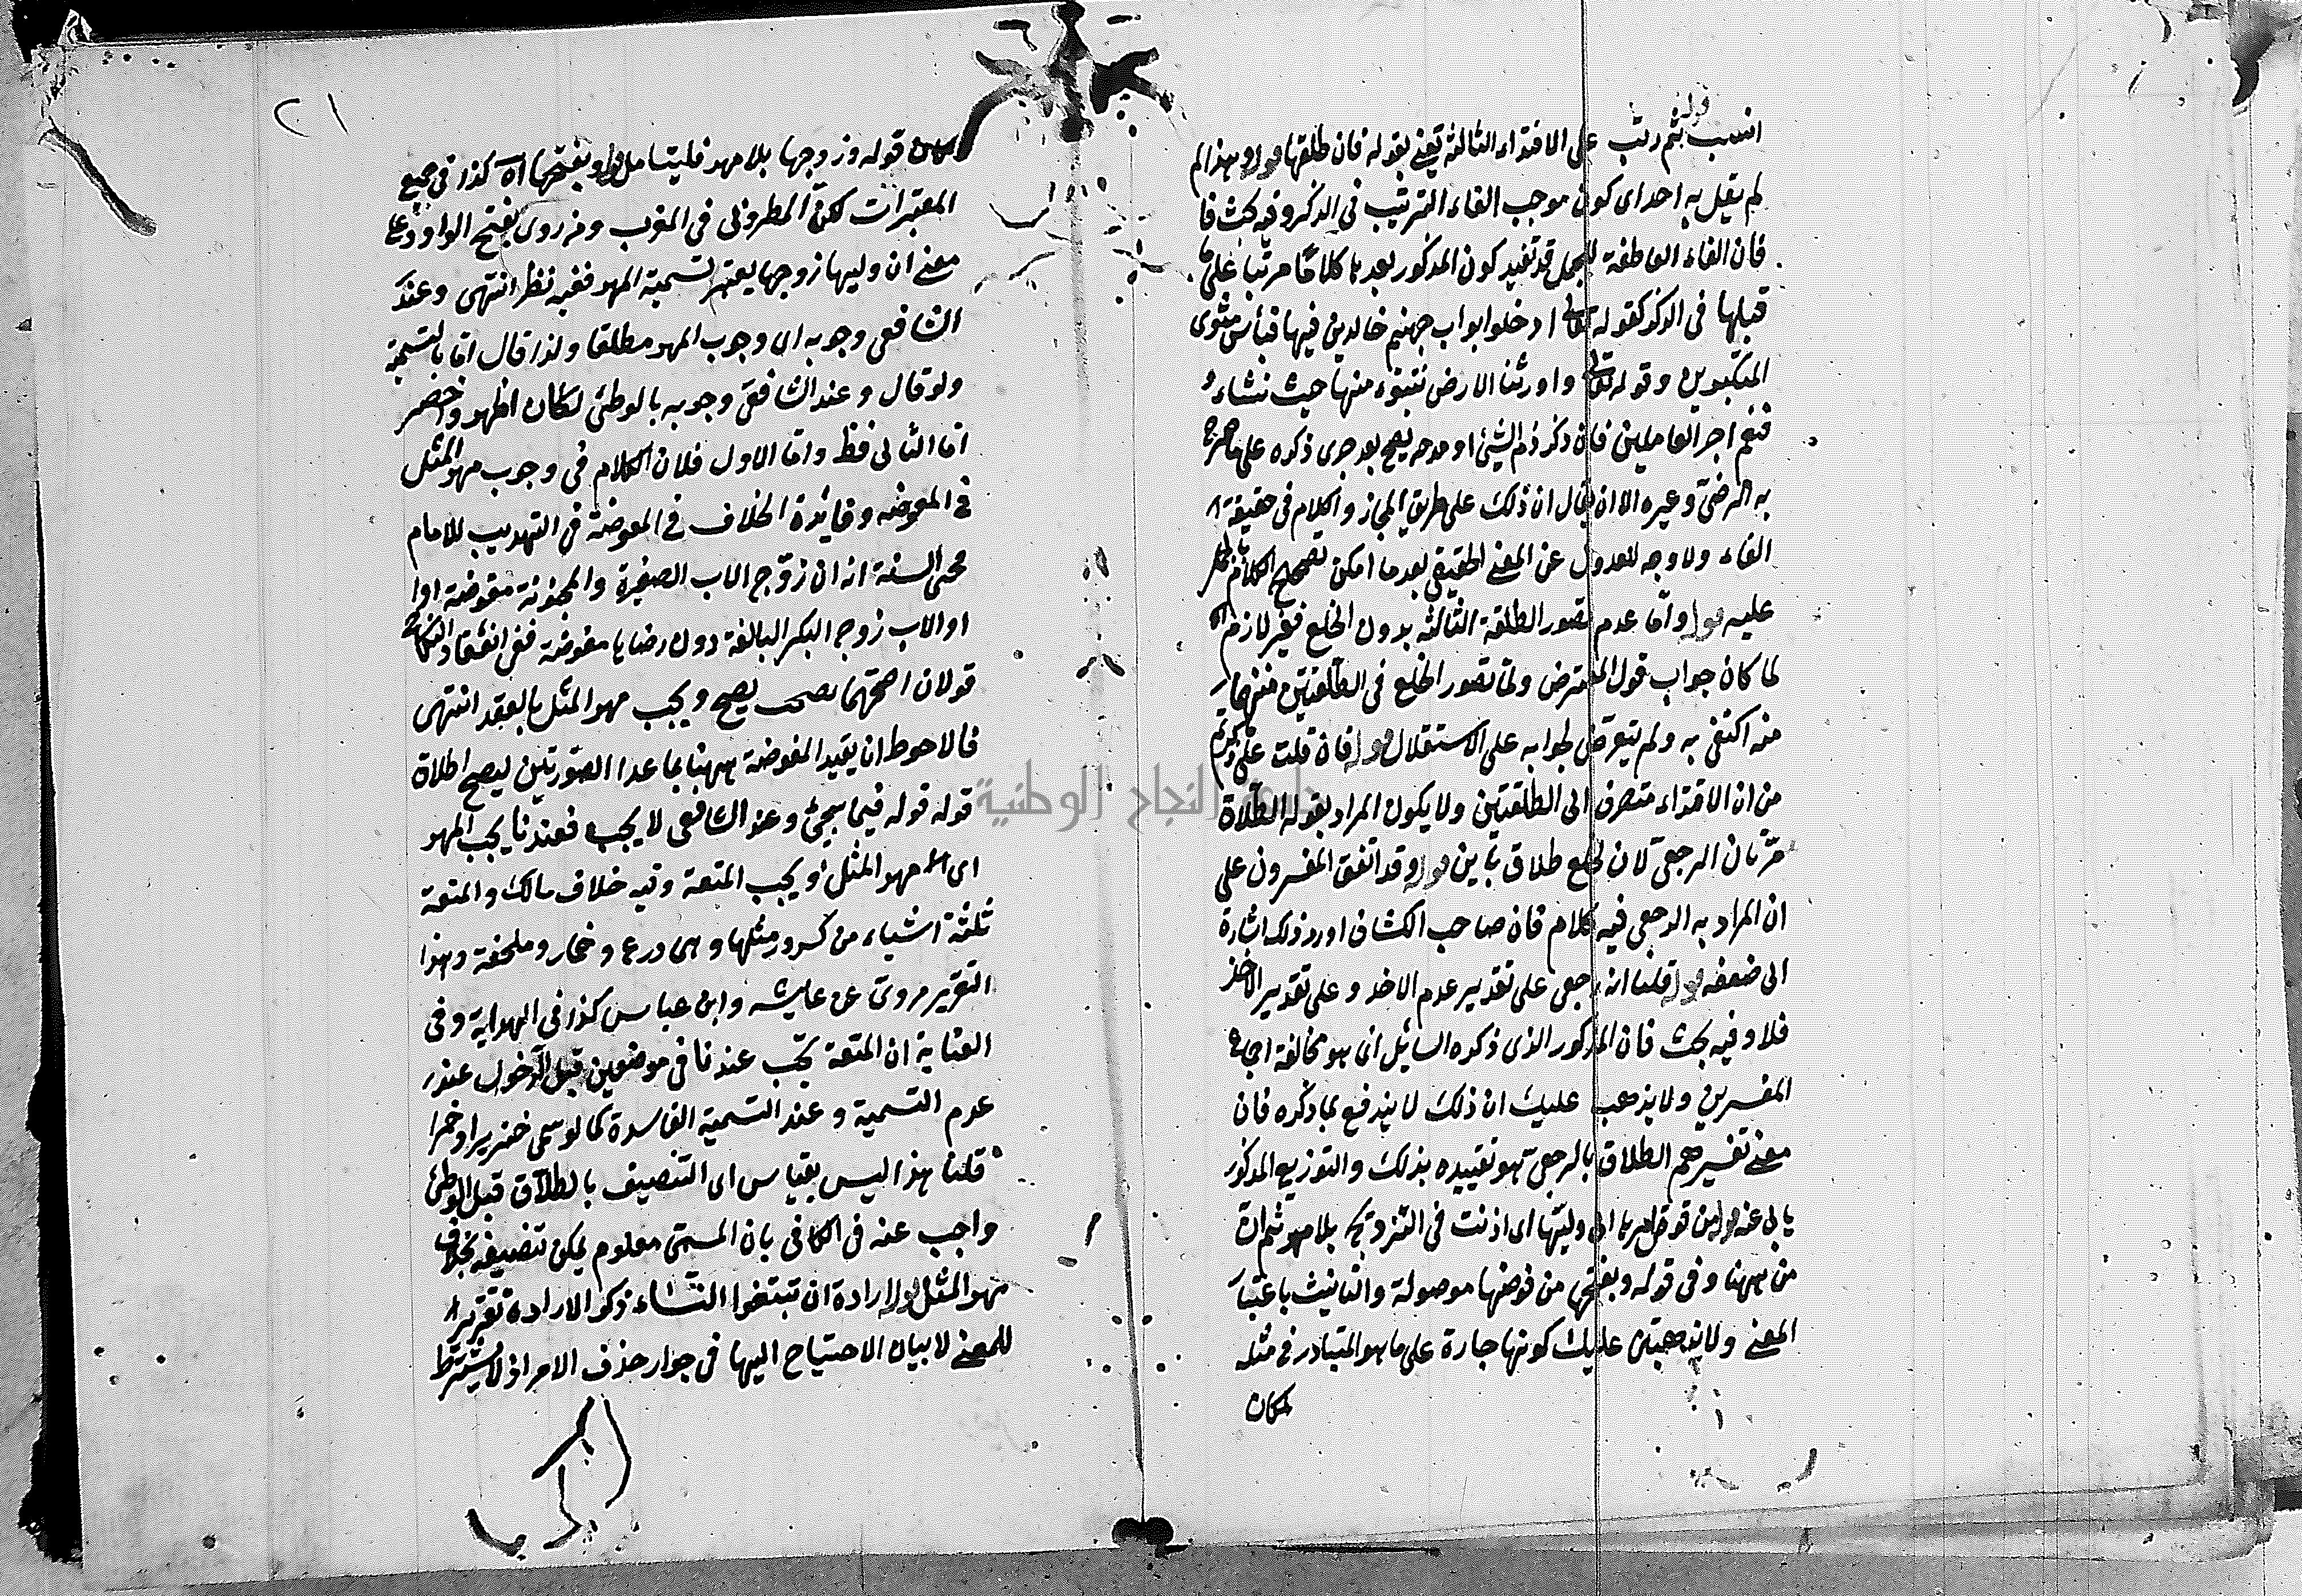 قوله
انسب ثم رتب على الافتداء الثالثة يعني بقوله فان طلقها قوله وبهذا لم
لم يقل به احد اى كون موجب الفاء الترتيب فى الذكر وفيه بحث فا
فان الفاء العاطفة للجمل قد تفيد كون المذكور بعدها كلاما مرتبا على ما
قبلها فى الذكر كقوله تعالى ادخلوا ابواب جهنم خالدين فيها فبئس مثوى
المتكبرين وقوله تعالى واورثنا الارض نتبوء منها حيث نشاء
فنعم اجر العاملين فان ذكر ذم الشيئ او مدحه يصح بعد جرى ذكره على ما صرح
به الرضى وغيره الا ان يقال ان ذلك على طريق المجاز والكلام فى حقيقة
الفاء ولا وجه للعدول عن المعنى الحقيقى بعد ما امكن تصحيح الكلام
عليه قوله واما عدم تصور الطلقة الثالثه بدون الخلع فغير لازم
لما كان جواب قول المعترض ولما تصور الخلع فى الطلقتين
منه اكتفى به ولم يتعرض لجوابه على الاستقلال قوله فان قلت على
من ان الافتداء منصرف الى الطلقتين ولا يكون المراد بقوله الطلاق
مرتان الرجعى لان الخلع طلاق باين قوله وقد اتفق المفسرون على
ان المراد به الرجعى فيه كلام فان صاحب الكشاف اورد ذلك اشارة
الى ضعفه قوله قلنا انه رجعى على تقدير عدم الاخذ وعلى تقدير الاخذ
فلا وفيه بحث فان المذكور الذى ذكره السائل اى هو مخالفة اجماع
المفسرين ولا يذهب عليك ان ذلك لا يندفع بما ذكره فان
معنى تفسيرهم الطلاق بالرجعى هو تقييده بذلك والتوزيع المذكور
يابى عنه قوله من فوض امرها الى وليها اى اذنت فى التزويج بلا مهر ثم ان
من ههنا وفى قوله وبفتحها من فوضها موصولة والتانيث باعتبار
المعنى ولا يذهب عليك كونها جارة على ما هو المتبادر فى مثله
لمكان
٢١
قوله وزوجها بلا مهر فليتامل قوله وبفتحها اه كذا فى جميع
المعتبرات لكن المطرزى فى المغرب ومن روى بفتح الواو على
معنى ان وليها زوجها بغير تسمية المهر ففيه نظر انتهى وعند
الشافعى وجوبه اى وجوب المهر مطلقا ولذا قال اما بالتسمية
ولو قال وعند الشافعى وجوبه بالوطئ لكان اظهر واخصر
اما الثانى فظ واما الاول فلان الكلام فى وجوب مهر المثل
فى المفوضه وفائدة الخلاف فى المفوضة فى التهذيب للامام
محى السنة انه ان زوج الاب الصغيرة والمجنونة مفوضة او
او الاب زوج البكر البالغة دون رضاها مفوضة ففى انعقاد النكاح
قولان اصحهما يصح ويجب مهر المثل بالعقد انتهى
فالاحوط ان يقيد المفوضة ههنا بما عدا الصورتين ليصح اطلاق
قوله قوله فيما سيجئ وعند الشافعى لا يجب فعندنا يجب المهر
اى مهر المثل او يجب المتعة وفيه خلاف مالك والمتعة
ثلثة اشياء من كسوة مثلها وهى درع وخمار وملحفة وهذا
التقدير مروى عن عايشه وابن عباس كذا فى الهداية وفى
العناية ان المتعة تجب عندنا فى موضعين قبل الدخول عند
عدم التسمية وعند التسمية الفاسدة كما لو سمى خنزيرا او خمرا
قلنا هذا ليس بقياس اى التنصيف بالطلاق قبل الوطئ
واجب عنه فى الكافى بان المسمى معلوم يمكن تنصيفه بخلاف
مهر المثل قوله ارادة ان تبتغوا النساء ذكر الارادة تقرير
للمعنى لا بيان الاحتياج اليها فى جواز حذف اللام اذ لا يشترط
جامعة النجاح الوطنية